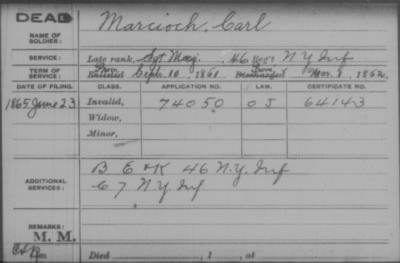 DEAD
NAME OF SOLDIER: Marcioch, Carl
SERVICE: Late rank, Sgt Maj, 46 Reg't N Y Inf
TERM OF SERVICE: Enlisted Sept. 10, 1861 Discharged Mar. 8, 1862
DATE OF FILING. CLASS. APPLICATION NO. LAW. CERTIFICATE NO.
1865 June 23 Invalid, 74050 O J 64143
Widow,
Minor,
ADDITIONAL SERVICES: B E & K 46 N.Y. Inf
C 7 N.Y. Inf
REMARKS:
M. M.
Died , 1 , at